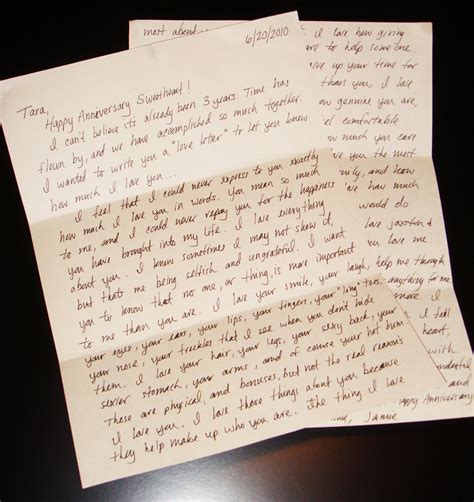 6/20/2010
Tara,
Happy Anniversary Sweetheart!
I can't believe its already been 3 years. Time has
flown by, and we have accomplished so much together.
I wanted to write you a "love letter" to let you know
how much I love you...
I feel that I could never express to you exactly
how much I love you in words. You mean so much
to me, and I could never repay you for the happiness
you have brought into my life. I love everything
about you. I know sometimes I may not show it,
but thats me being selfish and ungrateful. I want
you to know that no one, or thing, is more important
to me than you are. I love your smile, your laugh,
your eyes, your ears, your lips, your fingers, your "long" toes,
your nose, your freckles that I see when you don't hide
them. I love your hair, your legs, your sexy back, your
sexier stomach, your arms, and of course your hot bum.
Those are physical, and bonuses, but not the real reasons
I love you. I love those things about you because
they help make up who you are. The thing I love
most about
I love how giving
are to help someone
give up your time for
than you. I love
how genuine you are,
feel comfortable
how much you care
love you the most
and know
how much
would do
love jaxston &
you love me.
help me through
anything for me
more. I
I feel
heart,
with
Happy Anniversary
Jamie